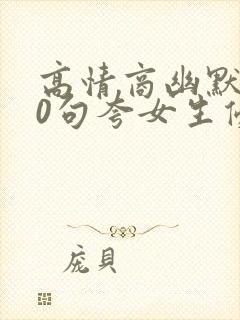 高情商幽默
0句夸女生
庞贝